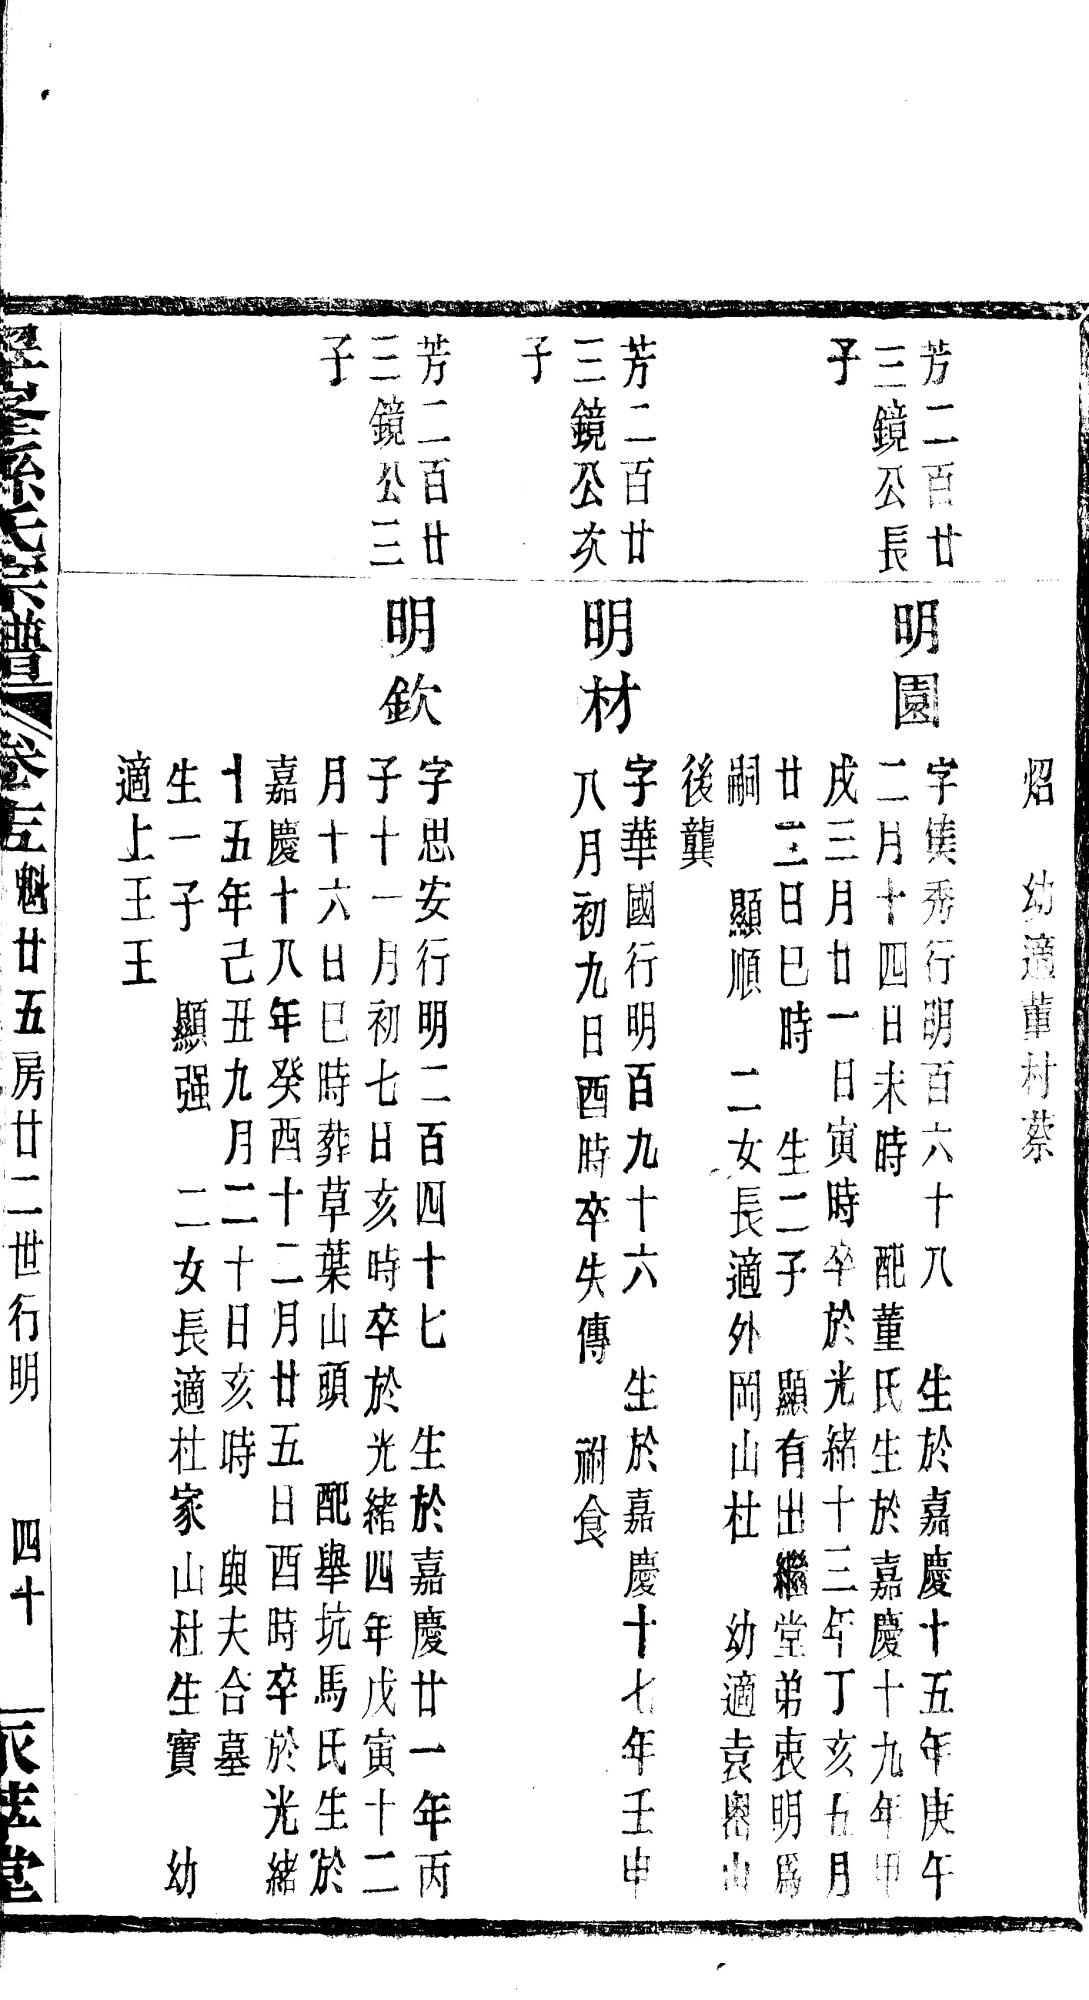 炤　幼適董村蔡
芳二百廿
三鏡公長
子
明園
字集秀行明百六十八　生於嘉慶十五年庚午
二月十四日未時　配董氏生於嘉慶十九年甲
戌三月廿一日寅時卒於光緒十三年丁亥五月
廿三日巳時　生二子　顯有出繼堂弟衷明爲
嗣　顯順　二女長適外岡山杜　幼適袁嶴山
後龔
芳二百廿
三鏡公次
子
明材
字華國行明百九十六　生於嘉慶十七年壬申
八月初九日酉時卒失傳　祔食
芳二百廿
三鏡公三
子
明欽
字思安行明二百四十七　生於嘉慶廿一年丙
子十一月初七日亥時卒於光緒四年戊寅十二
月十六日巳時葬草葉山頭　配舉坑馬氏生於
嘉慶十八年癸酉十二月廿五日酉時卒於光緒
十五年己丑九月二十日亥時　與夫合墓
生一子　顯强　二女長適杜家山杜生寶　幼
適上王王
孫氏宗譜　卷　魁廿五房廿二世行明　四十　堂